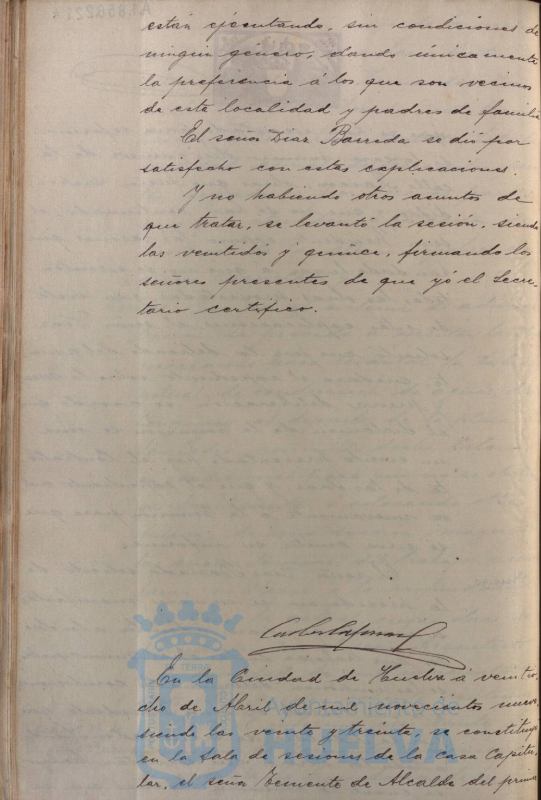 están ejecutando, sin condiciones de
ningún género, dando únicamente
la preferencia á los que son vecinos
de esta localidad y padres de familia
El señor Diaz Barreda se dió por
satisfecho con estas explicaciones.
Y no habiendo otros asuntos de
que tratar, se levantó la sesión, siendo
las veintidós y quince, firmando los
señores presentes de que yó el Secre-
tario certifico.
En la Ciudad de Huelva á veintio-
cho de Abril de mil novecientos nueve
siendo las veinte y treinta, se constituyó
en la Sala de sesiones de la casa Capitu-
lar, el señor Teniente de Alcalde del primer
HUELVA